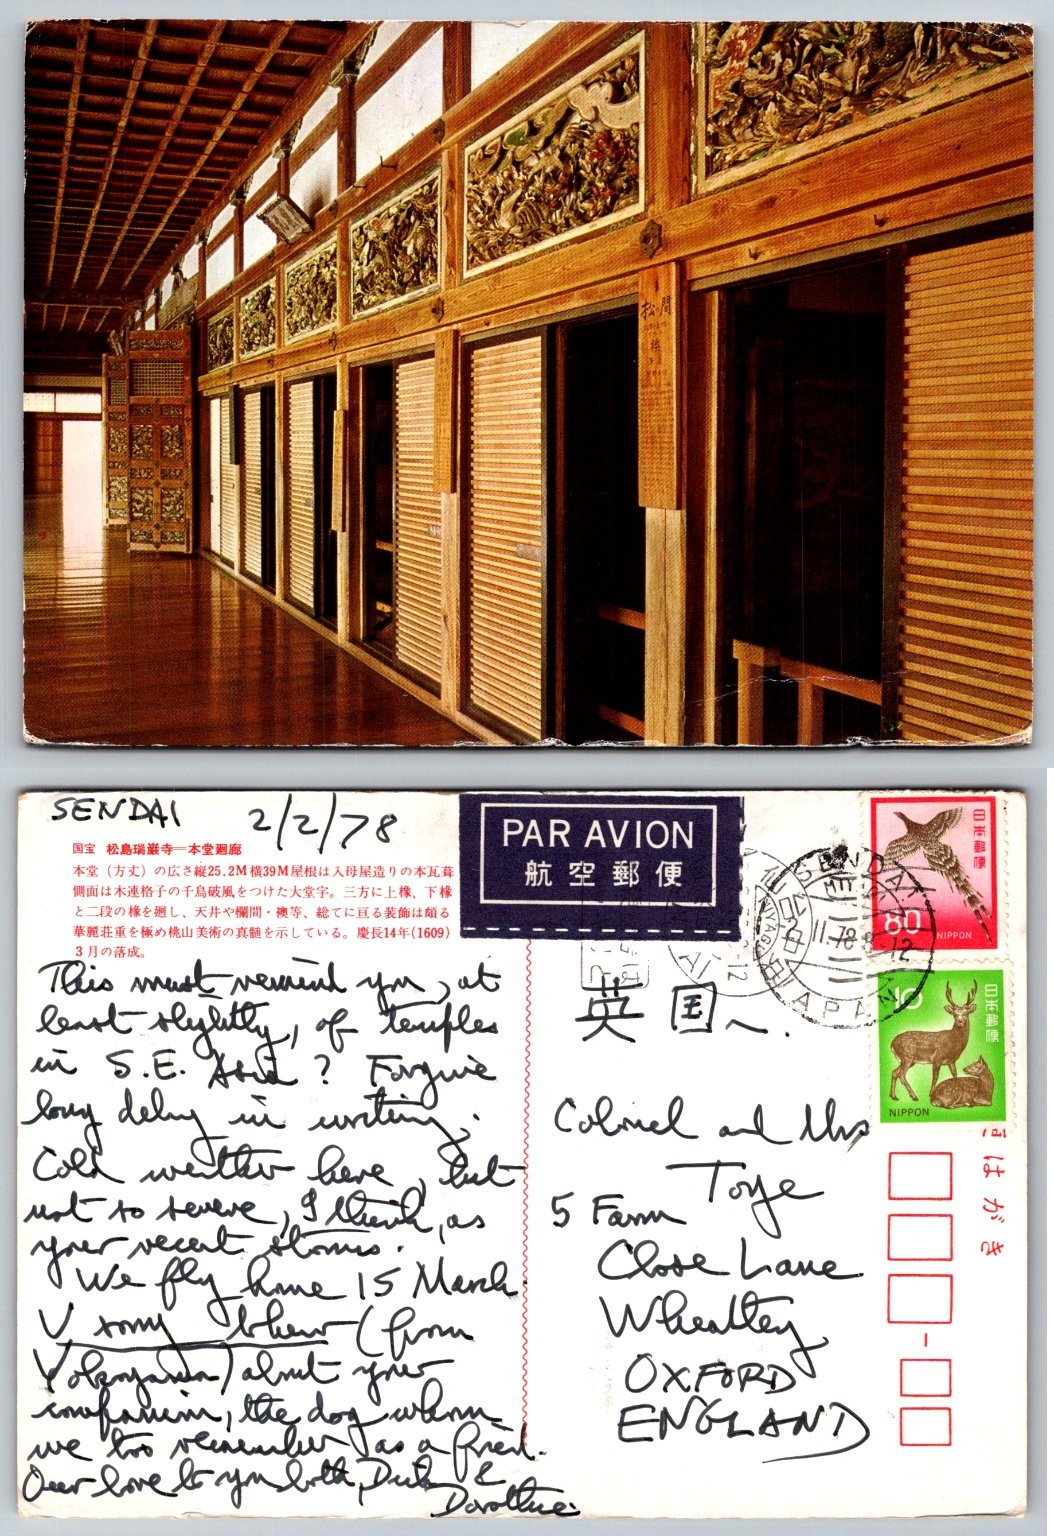 SENDAI 2/2/78
国宝 松島瑞巌寺＝本堂廻廊
本堂（方丈）の広さ縦25.2M横39M屋根は入母屋造りの本瓦葺
側面は木連格子の千鳥破風をつけた大堂宇。三方に上椽、下椽
と二段の椽を廻し、天井や欄間・襖等、総てに亘る装飾は頗る
華麗荘重を極め桃山美術の真髄を示している。慶長14年(1609)
3月の落成。
This must remind you, at
least slightly, of temples
in S.E. Asia ? Forgive
long delay in writing.
Cold weather here, but
not so severe, I think, as
your recent storms.
We fly home 15 March.
V. sorry (from
Yokoyama) about your
companion, the dog whom
we too remember as a friend.
Our love to you both, Dick &
Dorothie.
PAR AVION
航空郵便
SENDAI
MIYAGI
JAPAN
日本郵便
80
NIPPON
日本郵便
10
NIPPON
英国へ.
Colonel and Mrs
Toye
5 Farm
Close Lane
Wheatley
OXFORD
ENGLAND
はがき